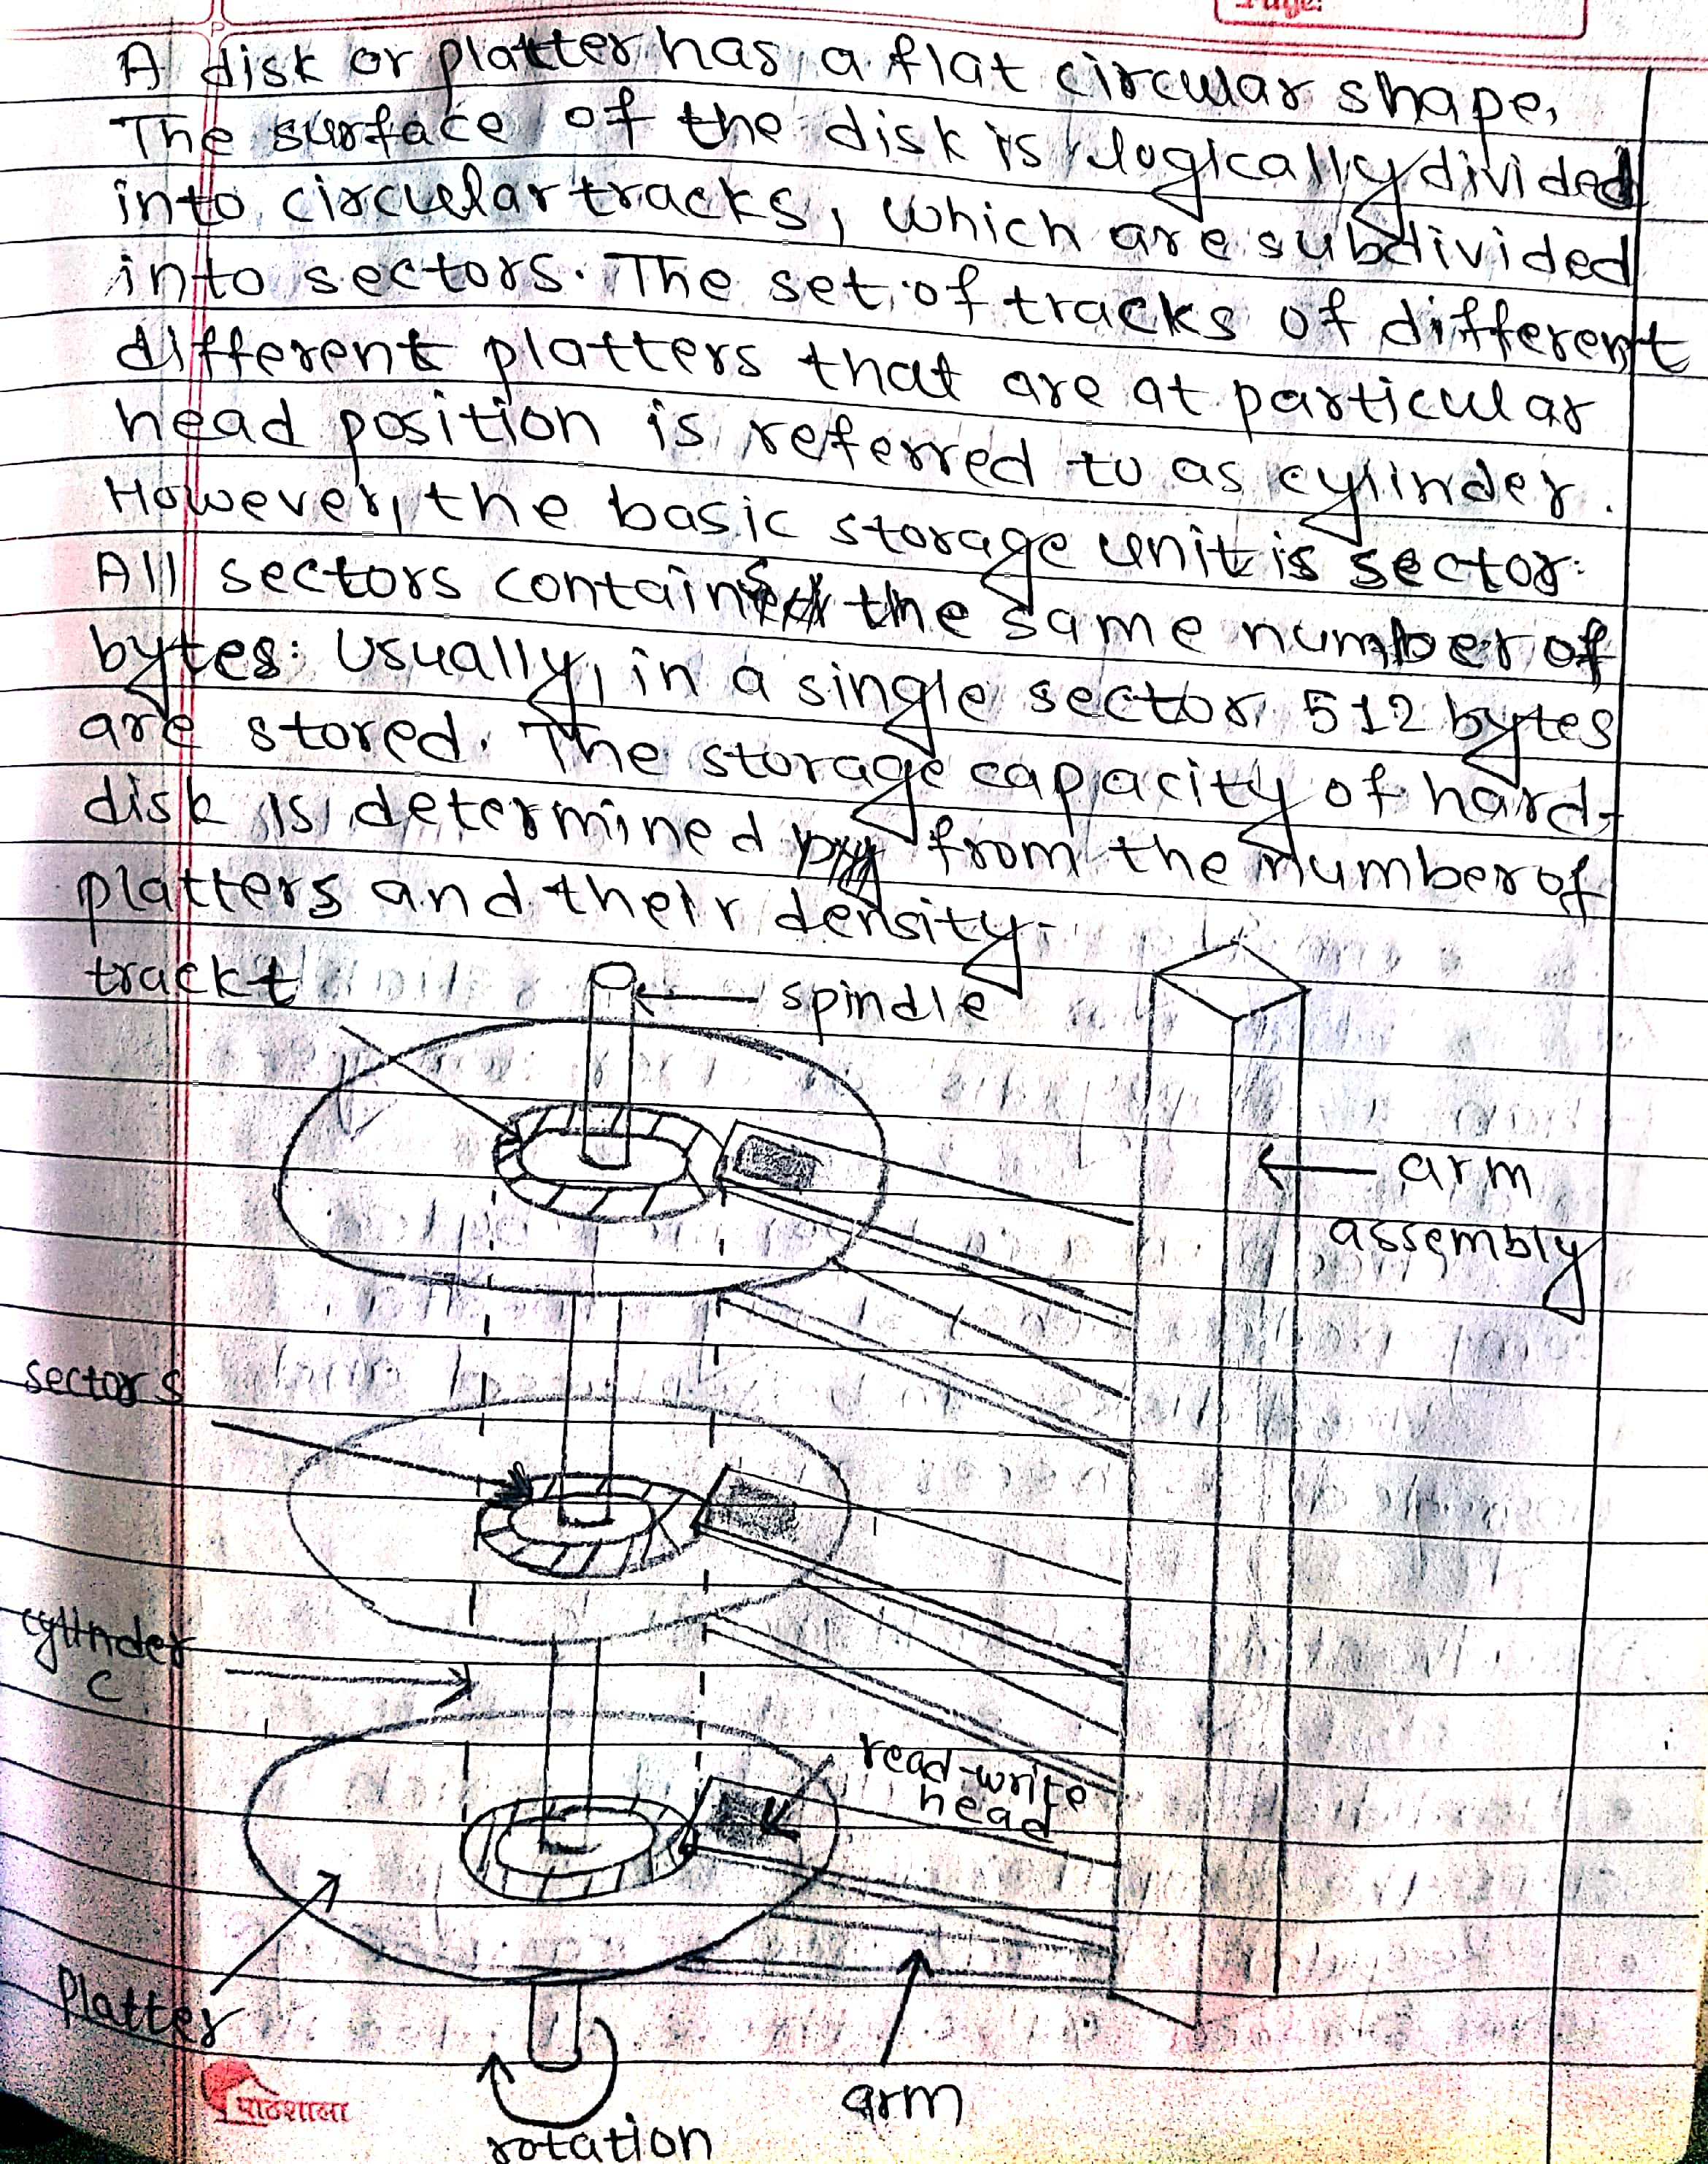 Page:
A disk or platter has a flat circular shape.
The surface of the disk is logically divided
into circular tracks, which are subdivided
into sectors. The set of tracks of different
different platters that are at particular
head position is referred to as cylinder.
However, the basic storage unit is sector.
All sectors contains the same number of
bytes. Usually, in a single sector 512 bytes
are stored. The storage capacity of hard-
disk is determined from the number of
platters and their density.
track t
spindle
arm
assembly
sectors
cylinder
c
read-write
head
Platter
arm
rotation
पाठशाला